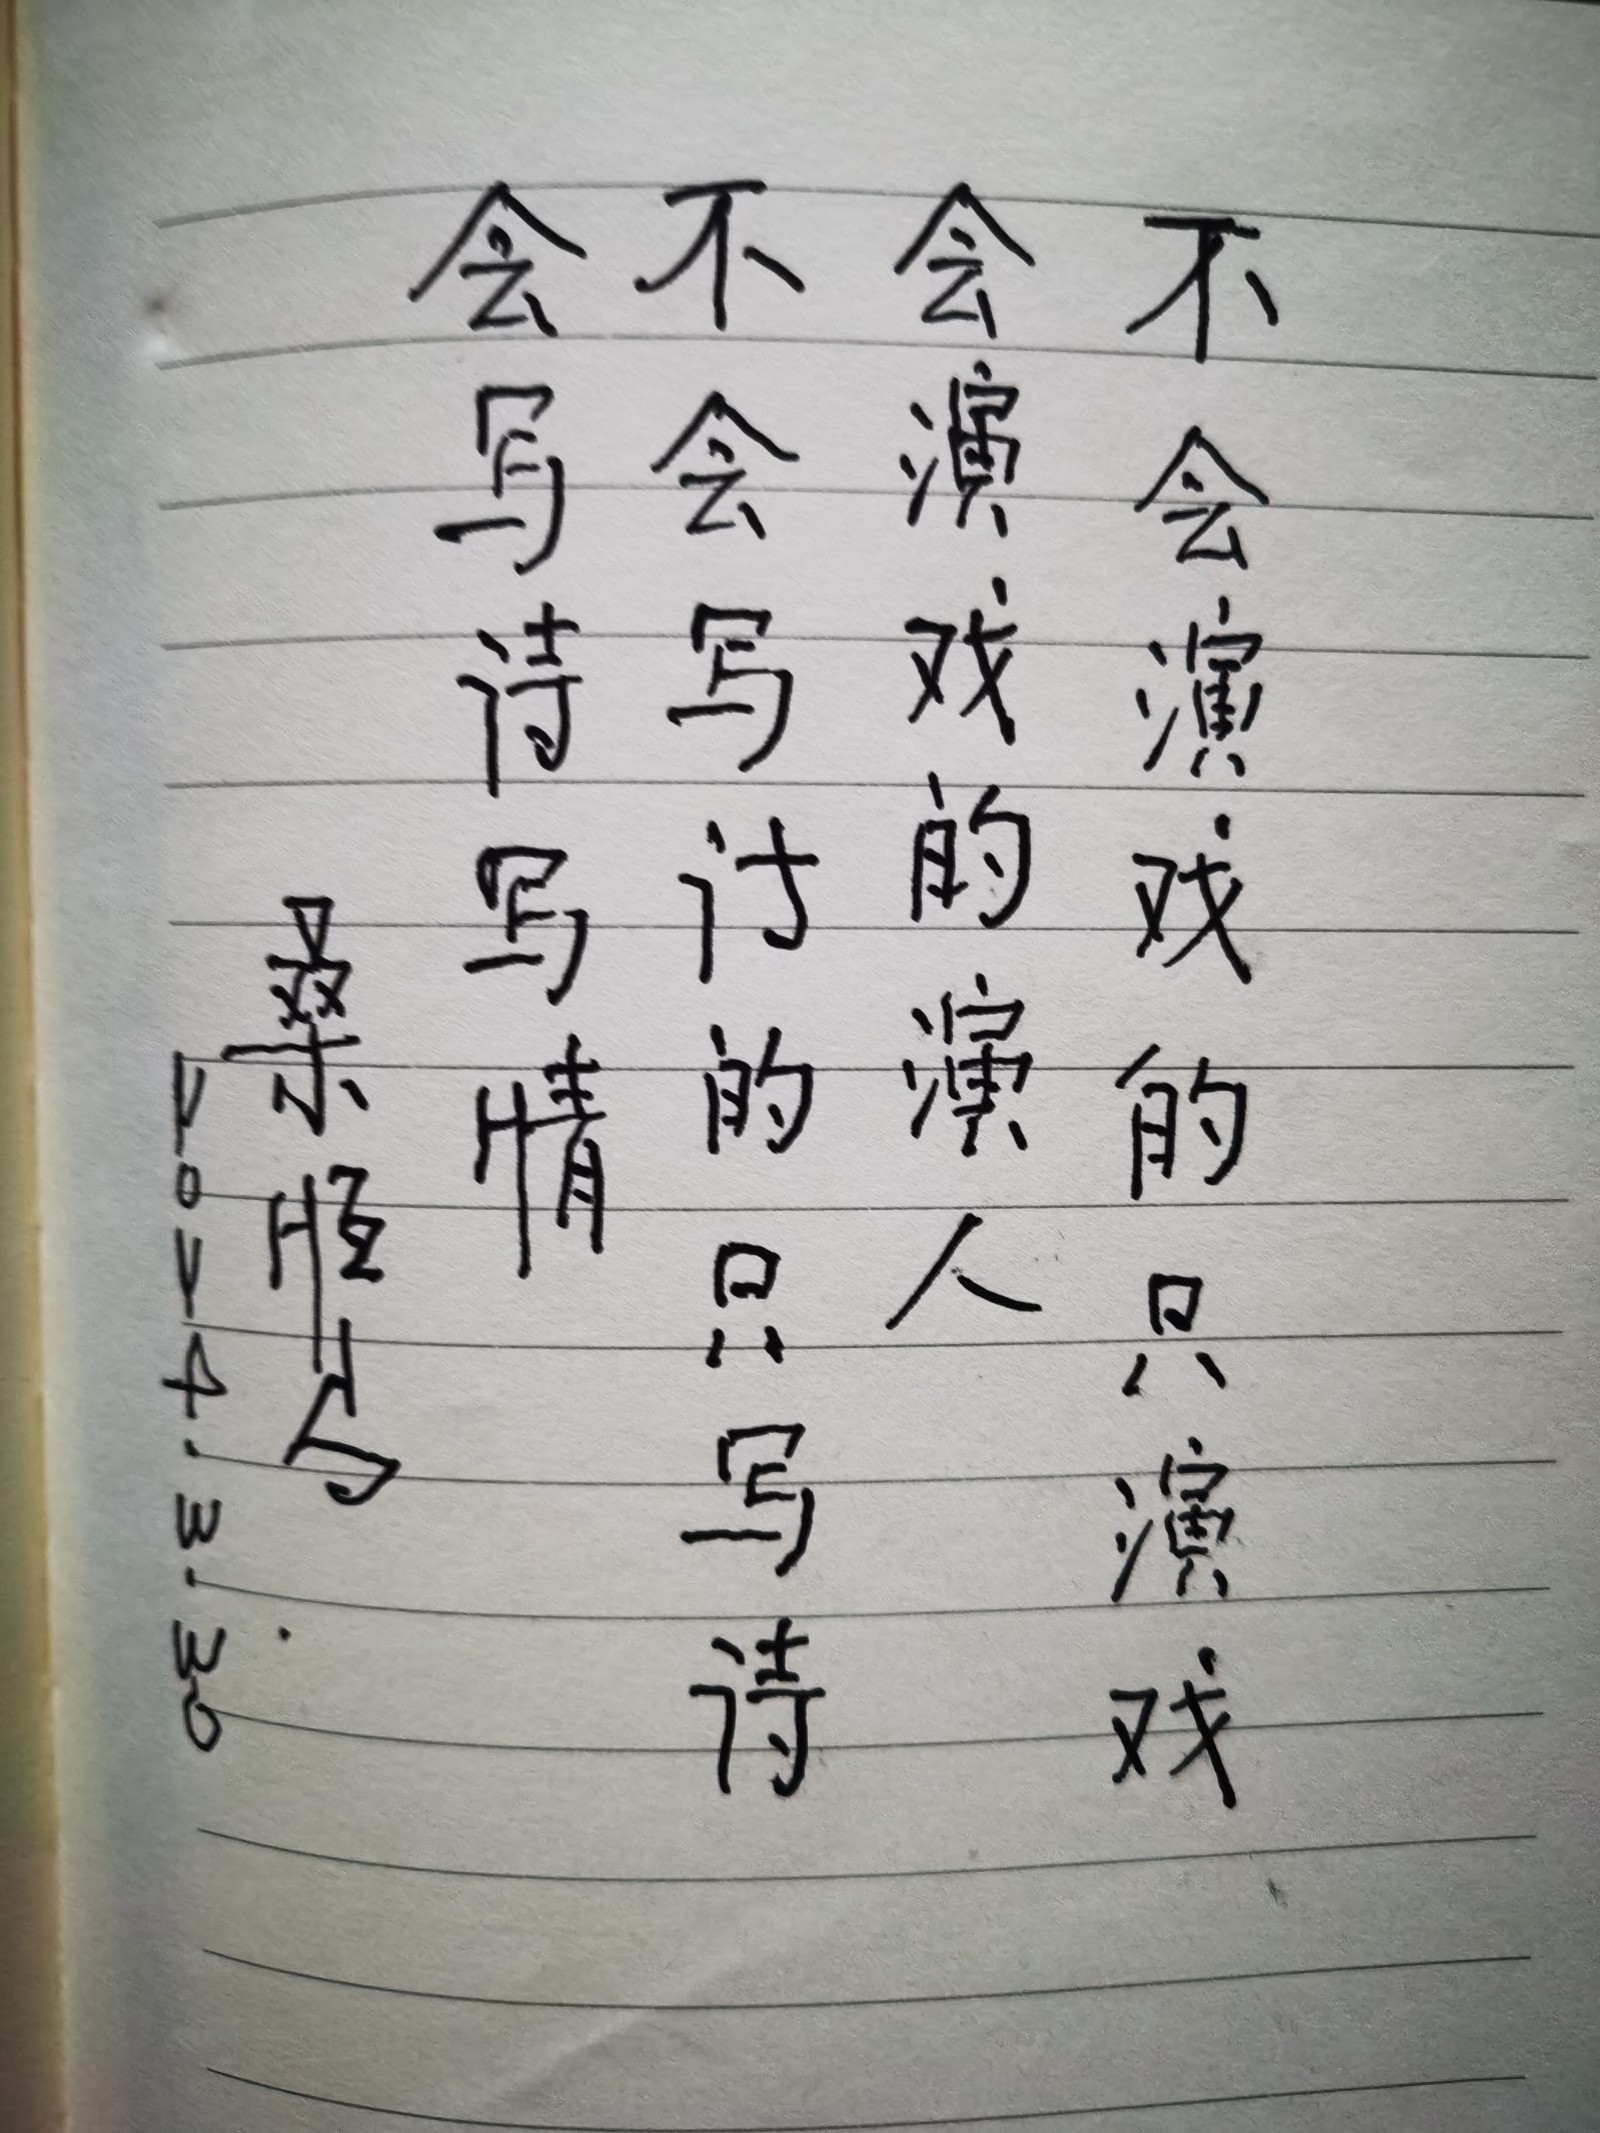 不会演戏的只演戏
会演戏的演人
不会写讨的只写诗
会写诗写情
2024.3.30